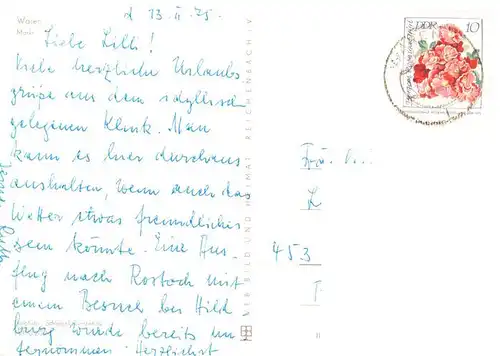 d 13. II. 75.
Waren
Liebe Lilli!
Viele herzliche Urlaubs
grüße aus dem idyllisch
gelegenen Klink. Man
kann es hier durchaus
aushalten, wenn auch das
Wetter etwas freundlicher
sein könnte. Eine Aus-
flug nach Rostock mit
einem Besuch bei Hild
burg wurde bereits un
ternommen. Herzlichst
VEB BILD UND HEIMAT REICHENBACH I. V.
DDR 10
453